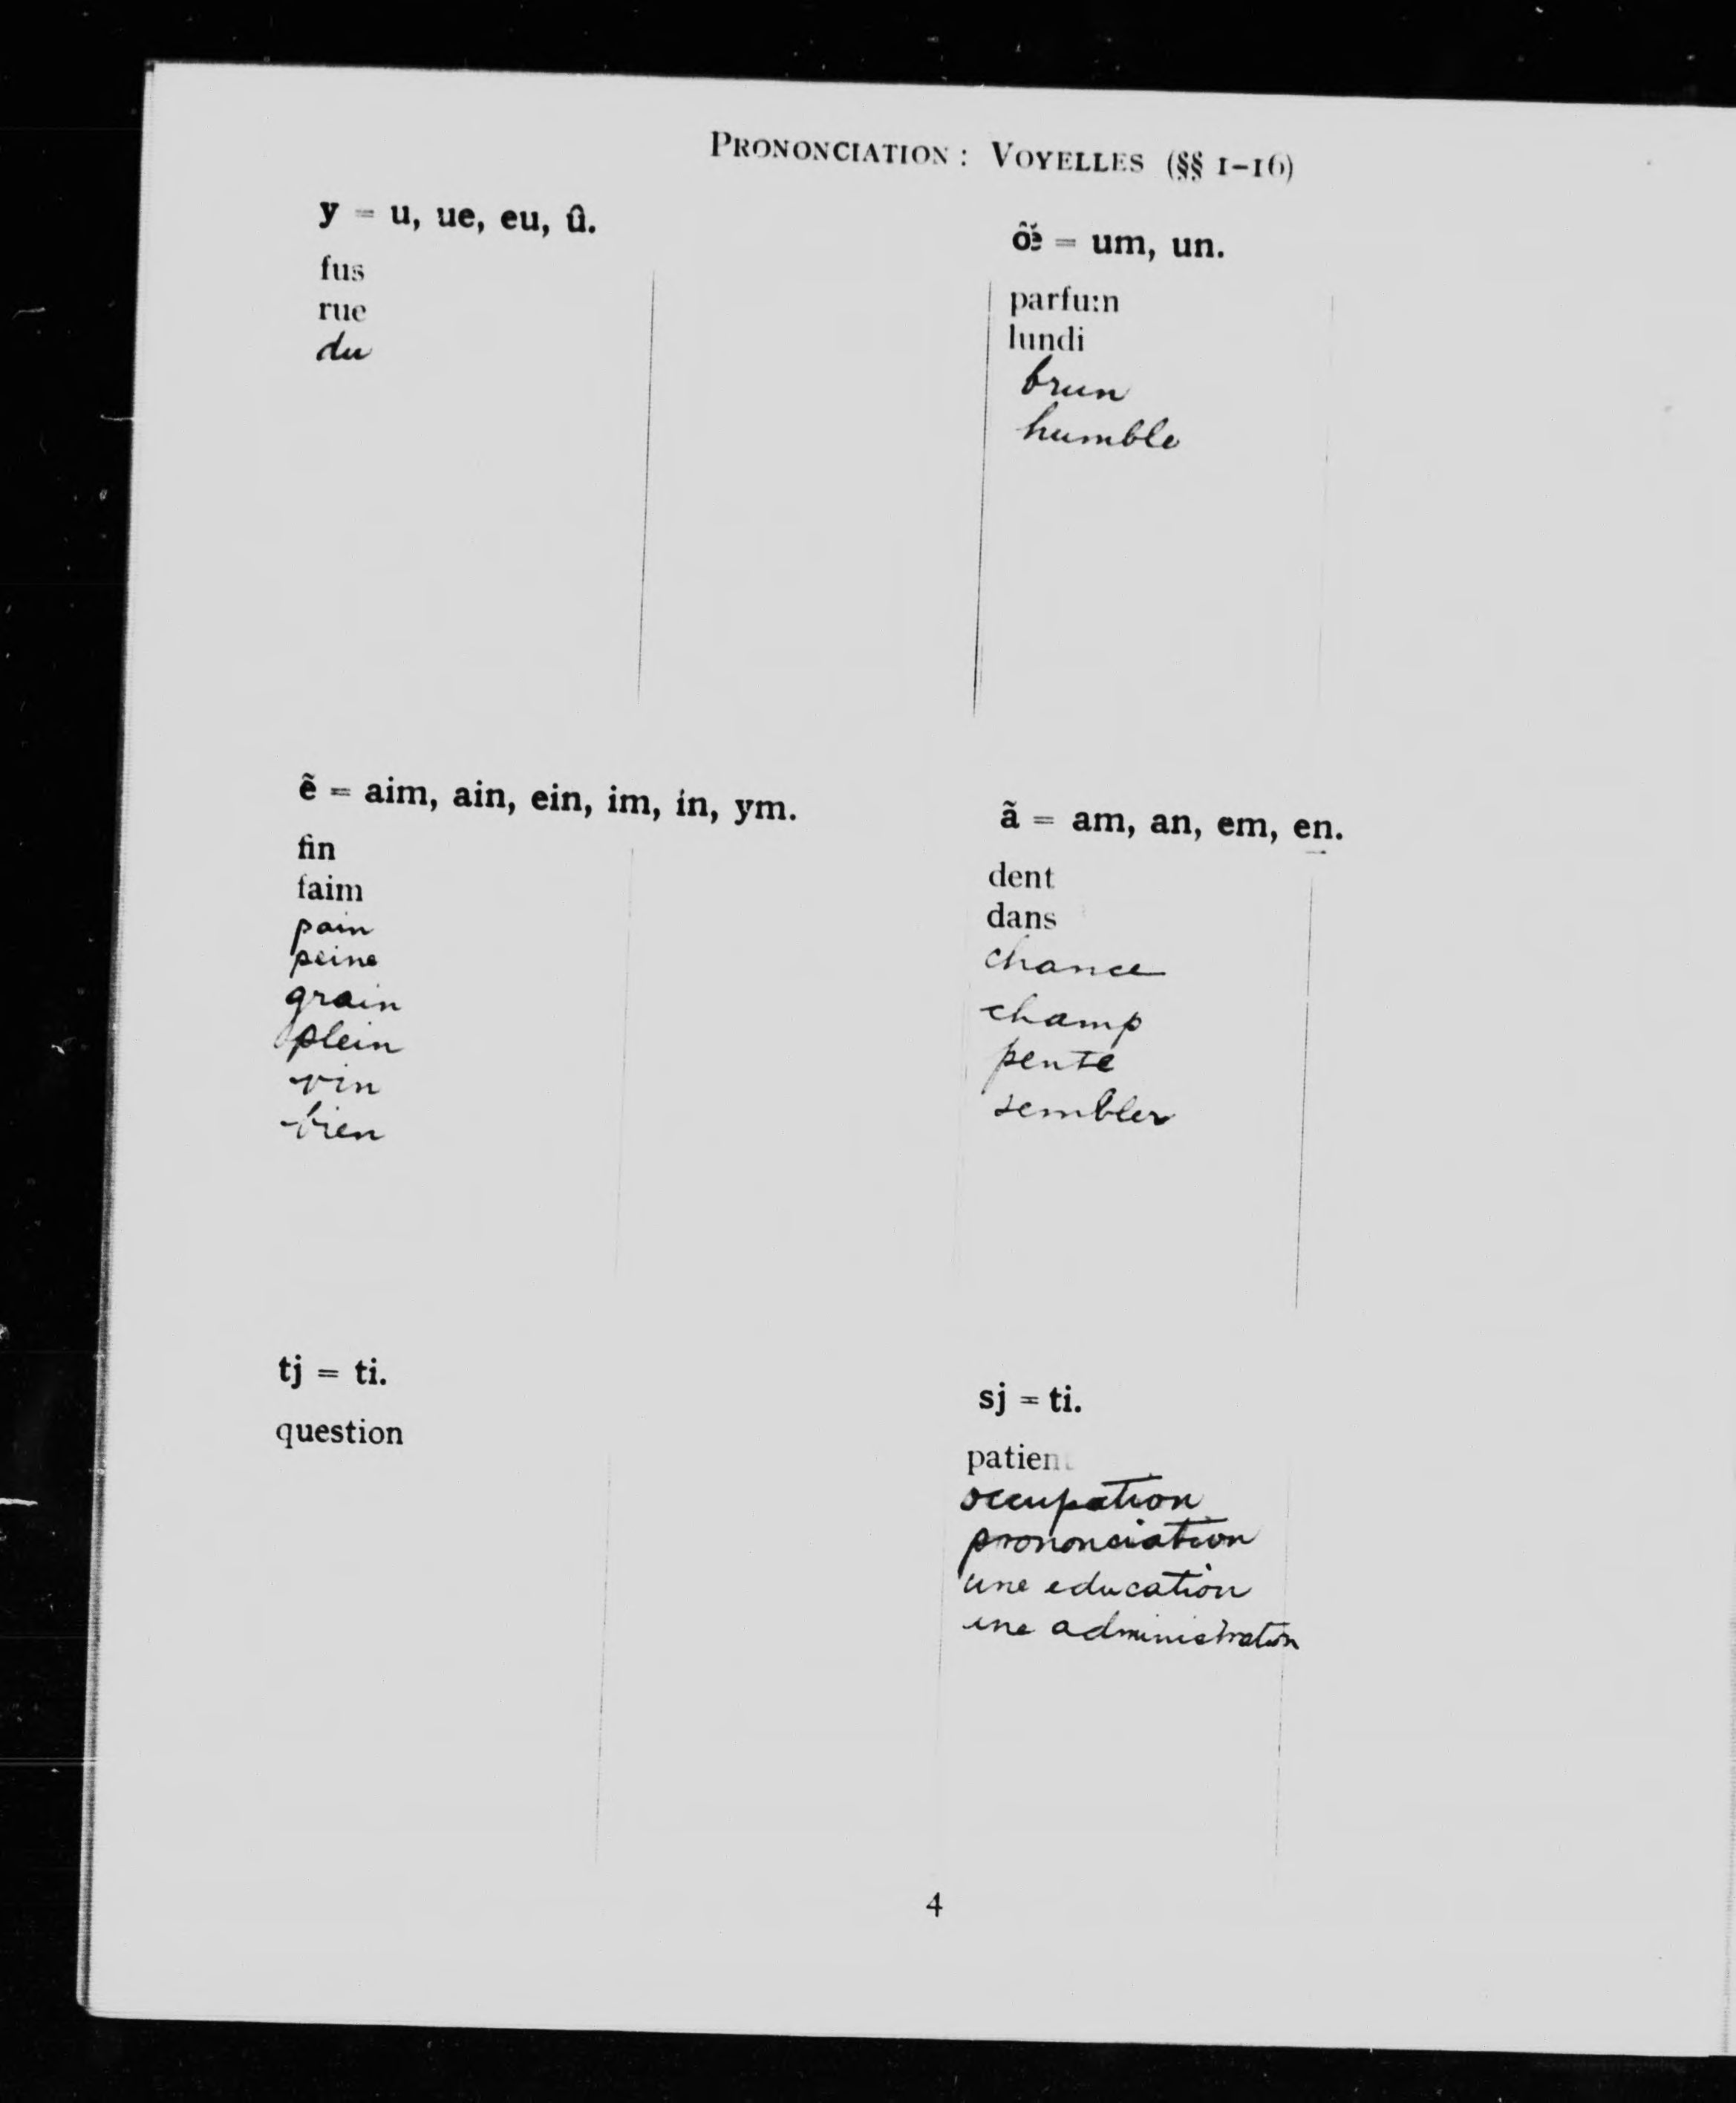 PRONONCIATION : VOYELLES (§§ 1–16)
y = u, ue, eu, û.
fus
rue
du
= um, un.
parfum
lundi
brun
humble
ẽ = aim, ain, ein, im, in, ym.
fin
faim
pain
peine
grain
plein
vin
bien
ã = am, an, em, en.
dent
dans
chance
champ
pente
sembler
tj = ti.
question
sj = ti.
patient
occupation
prononciation
une education
une administration
4